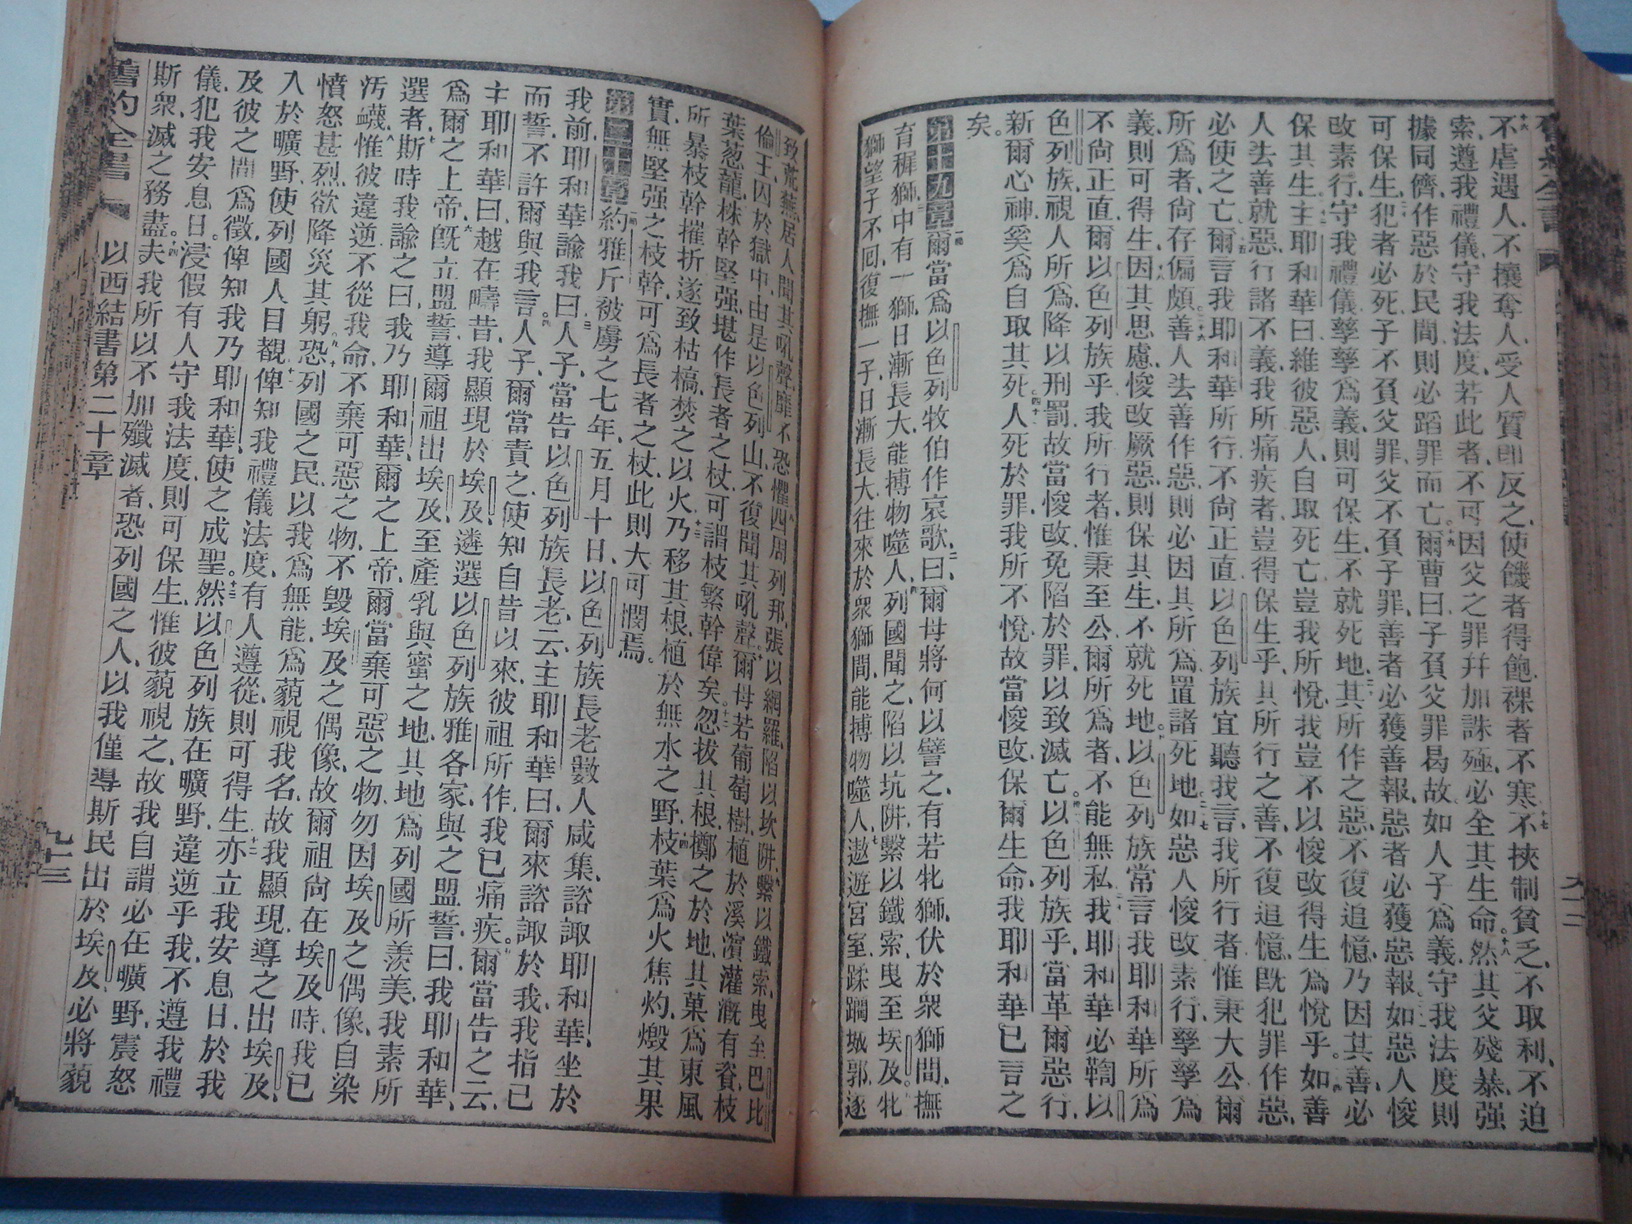 不虐遇人、不攘奪人、受人質卽反之、使饑者得飽、裸者不寒、十七不挾制貧乏、不取利、不迫
索、遵我禮儀、守我法度、若此者、不可因父之罪幷加誅殛、必全其生命。十八然其父殘暴、强
據同儕、作惡於民間、則必蹈罪而亡。十九爾曹曰、子負父罪曷故、如人子爲義、守我法度、則
可保生、犯者必死、子不負父罪、父不負子罪、善者必獲善報、惡者必獲惡報、如惡人悛
改素行、守我禮儀、孳孳爲義、則可保生、不就死地、其所作之惡、不復追憶、乃因其善、必
保其生、主耶和華曰、維彼惡人、自取死亡、豈我所悅、我豈不以悛改得生爲悅乎。如善
人去善就惡、行諸不義、我所痛疾者、豈得保生乎、其所行之善、不復追憶、旣犯罪作惡、
必使之亡、爾言我耶和華所行、不尙正直、以色列族宜聽我言、我所行者、惟秉大公、爾
所爲者、尙存偏頗、善人去善作惡、則必因其所爲、置諸死地、如惡人悛改素行、孳孳爲
義、則可得生、因其思慮、悛改厥惡、則保其生、不就死地、以色列族常言我耶和華所爲、
不尙正直、爾以色列族乎、我所行者、惟秉至公、爾所爲者、不能無私、我耶和華必鞫以
色列族、視人所爲、降以刑罰、故當悛改、免陷於罪、以致滅亡、以色列族乎、當革爾惡行、
新爾心神、奚爲自取其死、人死於罪、我所不悅、故當悛改、保爾生命、我耶和華已言之
矣。
第十九章爾當爲以色列牧伯作哀歌、曰、爾母將何以譬之、有若牝獅、伏於衆獅間、撫
育穉獅、中有一獅、日漸長大、能搏物噬人、列國聞之、陷以坑阱、繫以鐵索、曳至埃及。牝
獅望子不回、復撫一子、日漸長大、往來於衆獅間、能搏物噬人、遨遊宮室、蹂躪城郭、遂
致荒蕪、居人聞其吼聲、靡不恐懼、四周列邦、張以網羅、陷以坎阱、繫以鐵索、曳至巴比
倫王、囚於獄中、由是以色列山、不復聞其吼聲。爾母若葡萄樹、植於溪濱、灌漑有資、枝
葉葱蘢、株幹堅强、堪作長者之杖、可謂枝繁幹偉矣。忽拔其根、擲之於地、其菓爲東風
所暴、枝幹摧折、遂致枯槁、焚之以火、乃移其根、植於無水之野、枝葉爲火焦灼、燬其果
實、無堅强之枝幹、可爲長者之杖、此則大可憫焉。
第二十章約雅斤被虜之七年、五月十日、以色列族長老數人咸集、諮諏耶和華、坐於
我前、耶和華諭我曰、人子、當告以色列族長老云、主耶和華曰、爾來諮諏於我、我指已
而誓、不許爾與我言。人子、爾當責之、使知自昔以來、彼祖所作、我已痛疾。爾當告之云、
主耶和華曰、越在疇昔、我顯現於埃及、遴選以色列族雅各家、與之盟誓曰、我耶和華、
爲爾之上帝、旣立盟誓、導爾祖出埃及、至產乳與蜜之地、其地爲列國所羨美、我素所
選者、斯時我諭之曰、我乃耶和華、爾之上帝、爾當棄可惡之物、勿因埃及之偶像、自染
汚衊、惟彼違逆、不從我命、不棄可惡之物、不毀埃及之偶像、故爾祖尙在埃及時、我已
憤怒甚烈、欲降災其躬、恐列國之民、以我爲無能、爲藐視我名、故我顯現、導之出埃及、
入於曠野、使列國人目覩、俾知我禮儀法度、有人遵從、則可得生、亦立我安息日、於我
及彼之間爲徵、俾知我乃耶和華、使之成聖。然以色列族在曠野、違逆乎我、不遵我禮
儀、犯我安息日。浸假有人守我法度、則可保生、惟彼藐視之、故我自謂必在曠野、震怒
斯衆、滅之務盡、夫我所以不加殲滅者、恐列國之人、以我僅導斯民出於埃及、必將藐
舊約全書
以西結書第二十章
九十三